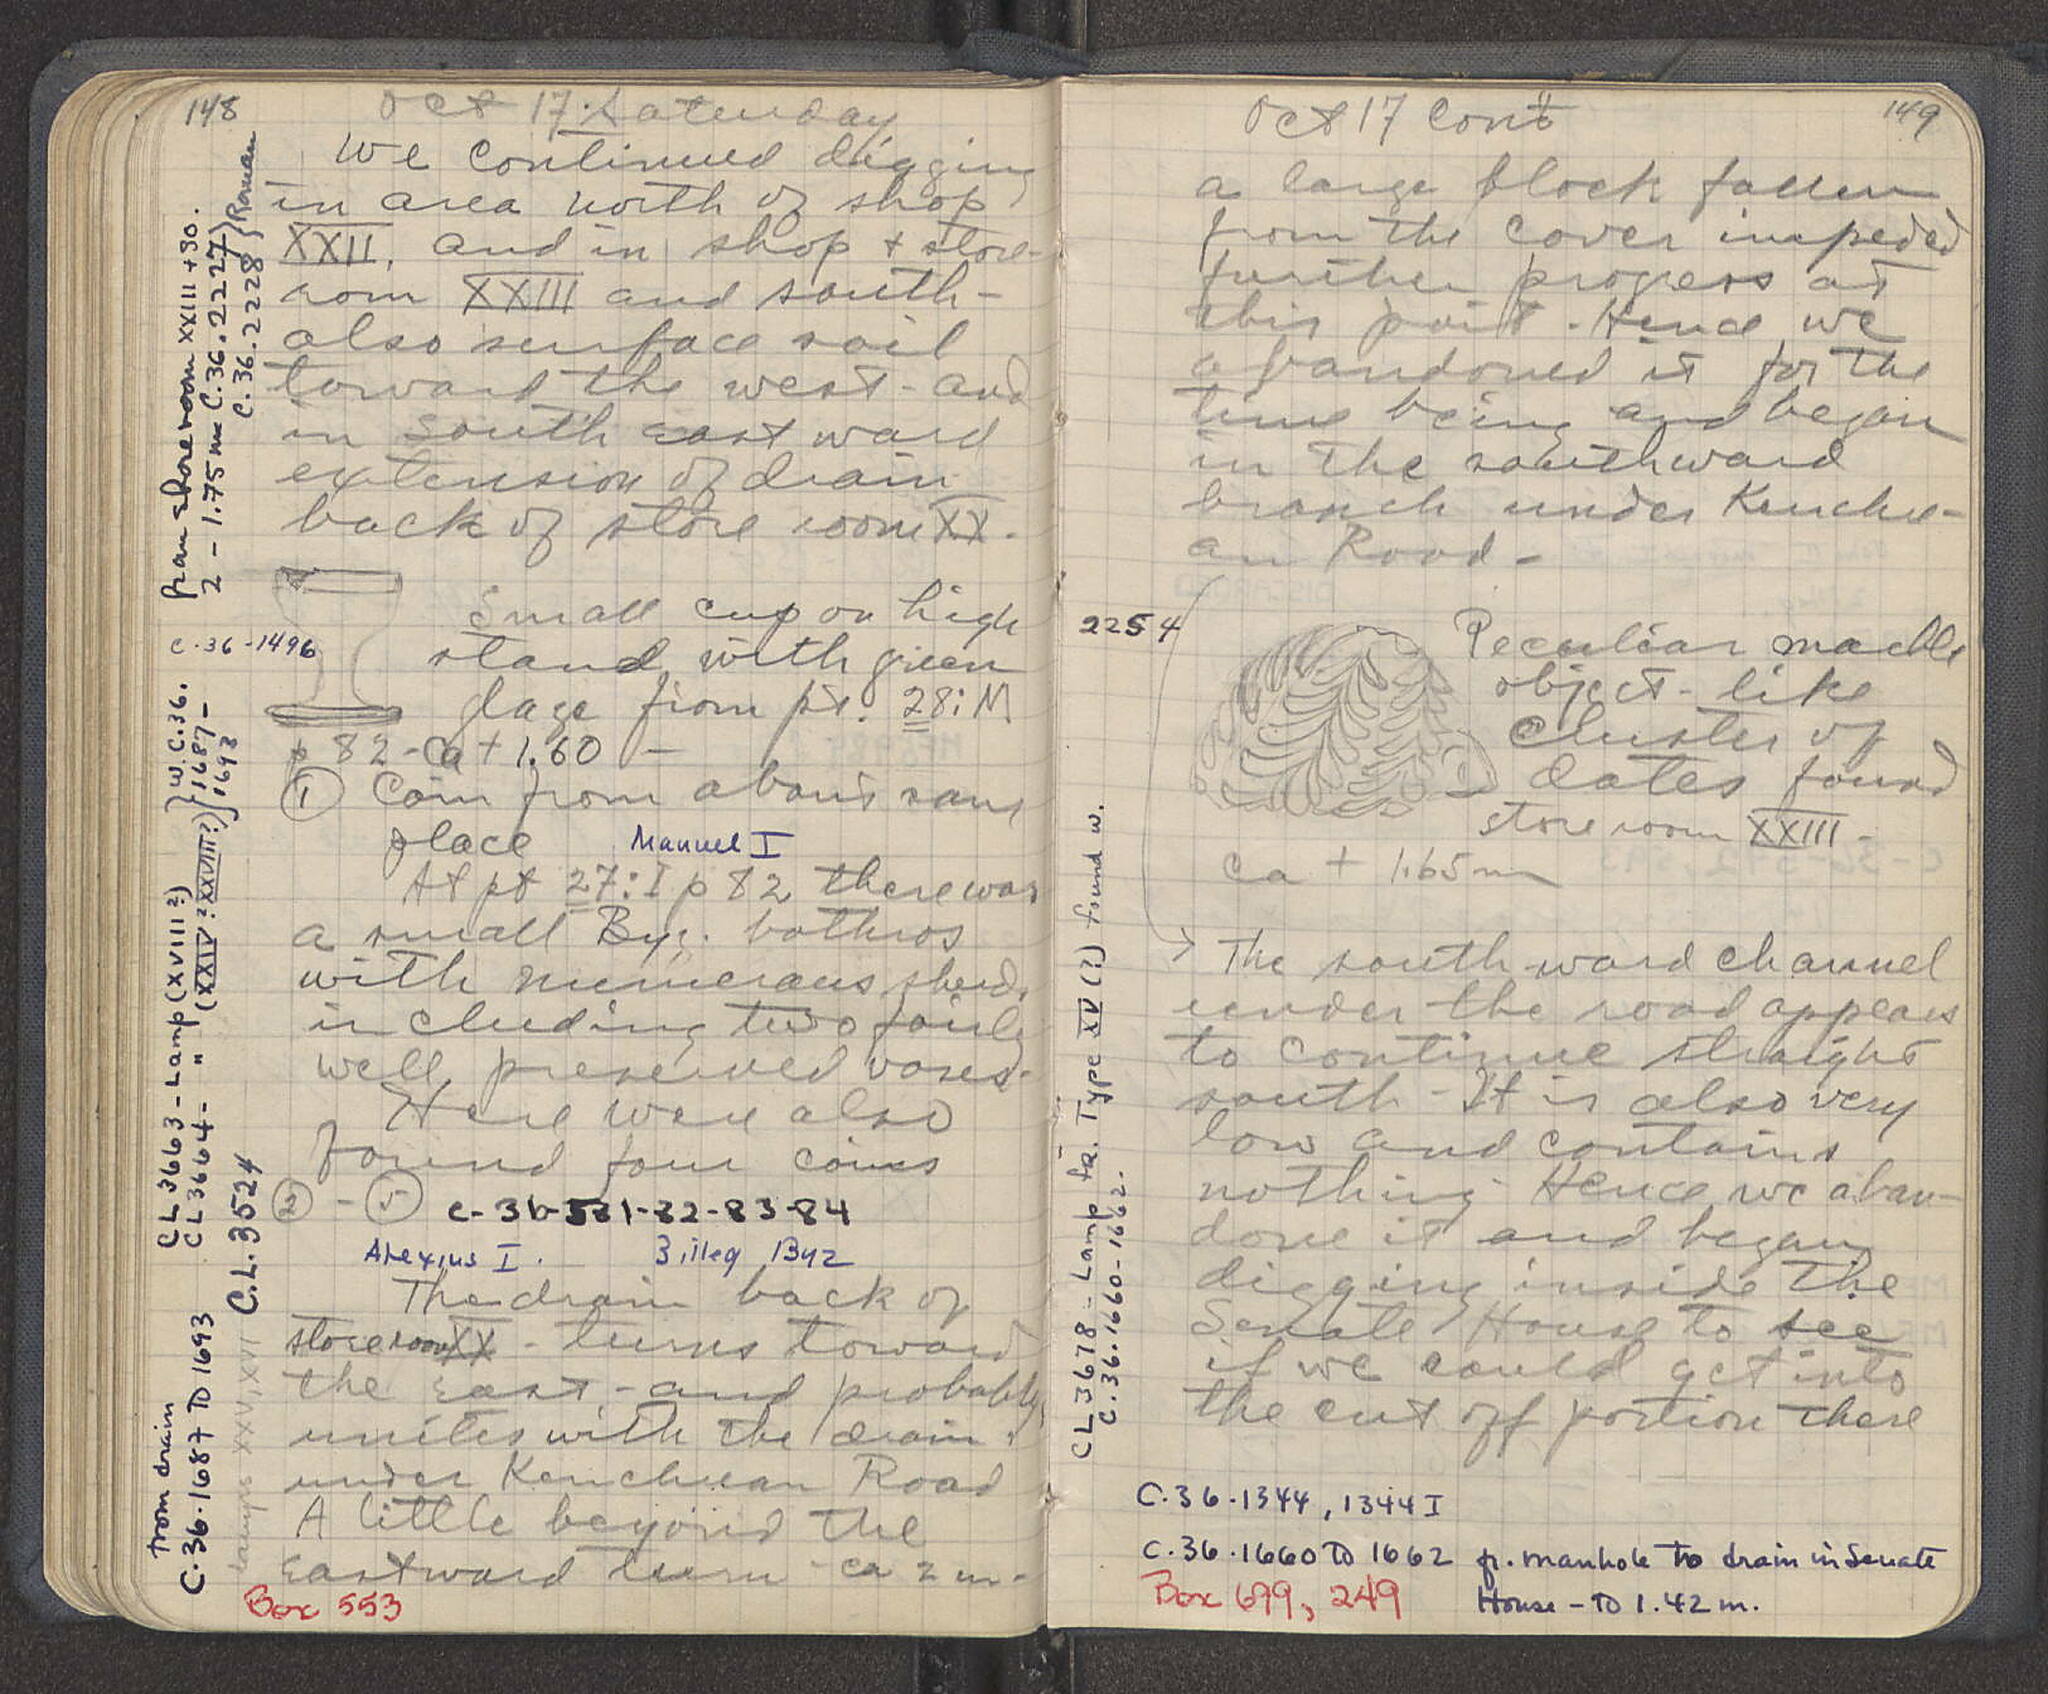 148
Oct 17. Saturday
We continued digging
in area north of shop
XXII, and in shop + store-
room XXIII and south-
also surface soil
toward the west - and
in south eastward
extension of drain
back of store room XX.
Small cup on high
stand with green
glaze from pt. 28:M
p 82 - ca + 1.60 -
C.36-1496
① Coin from about same
place Manuel I
At pt 27:I p 82 there was
a small Byz. bothros
with numerous sherds
including two fairly
well preserved vases.
Here were also
found four coins
② - ⑤ C-36-581-82-83-84
Alexius I. 3 illeg Byz
The drain back of
store room XX - turns toward
the east - and probably
unites with the drain
under Kenchrean Road
A little beyond the
eastward turn - ca 2 m -
Box 553
from storeroom XXIII + 30.
2 - 1.75 m C.36.2227 } Roman
C.36.2228
CL 3663 - Lamp (XVIII?) } w. C.36.
CL 3664 - " (XXIV? XXVIII?) } 1687 -
1693
C.L. 3524
from drain
C.36.1687 TO 1693
Lamps XXV, XVI
149
Oct 17 Cont'd
a large block fallen
from the cover impeded
further progress at
this point. Hence we
abandoned it for the
time being and began
in the southward
branch under Kenchre-
an Road -
2254
Peculiar marble
object - like
cluster of
dates found
store room XXIII -
ca + 1.65 m
The southward channel
under the road appears
to continue straight
south - It is also very
low and contains
nothing. Hence we aban-
done it and began
digging inside the
Senate House to see
if we could get into
the cut off portion there
CL 3678 - Lamp fa. Type XV (?) found w.
C.36.1660-1662.
C.36.1344, 1344 I
C.36.1660 TO 1662 fr. manhole to drain in Senate
House - TO 1.42 m.
Box 699, 249